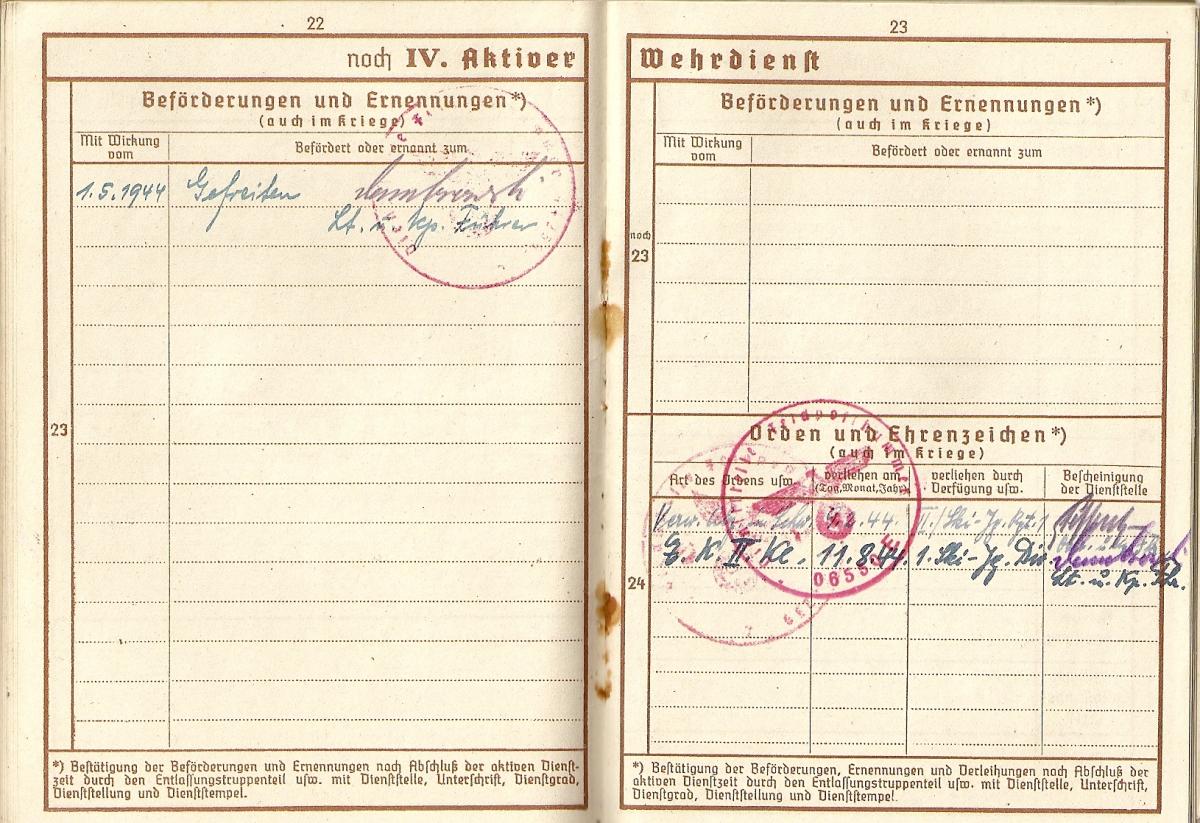 22
noch IV. Aktiver
Beförderungen und Ernennungen*)
(auch im Kriege)
Mit Wirkung vom
Befördert oder ernannt zum
1.5.1944 Gefreiten
Lt. u. Kp. Führer
23
*) Bestätigung der Beförderungen und Ernennungen nach Abschluß der aktiven Dienst-
zeit durch den Entlassungstruppenteil usw. mit Dienststelle, Unterschrift, Dienstgrad,
Dienststellung und Dienststempel.
23
Wehrdienst
Beförderungen und Ernennungen*)
(auch im Kriege)
Mit Wirkung vom
Befördert oder ernannt zum
noch
23
Orden und Ehrenzeichen*)
(auch im Kriege)
Art des Ordens usw.
verliehen am
(Tag, Monat, Jahr)
verliehen durch
Verfügung usw.
Bescheinigung
der Dienststelle
44. Ski-Jg. Rgt. 1
E. K. II. Kl. 11.8.44. 1. Ski-Jg. Div.
Lt. u. Kp. Fhr.
24
*) Bestätigung der Beförderungen, Ernennungen und Verleihungen nach Abschluß der
aktiven Dienstzeit durch den Entlassungstruppenteil usw. mit Dienststelle, Unterschrift,
Dienstgrad, Dienststellung und Dienststempel.